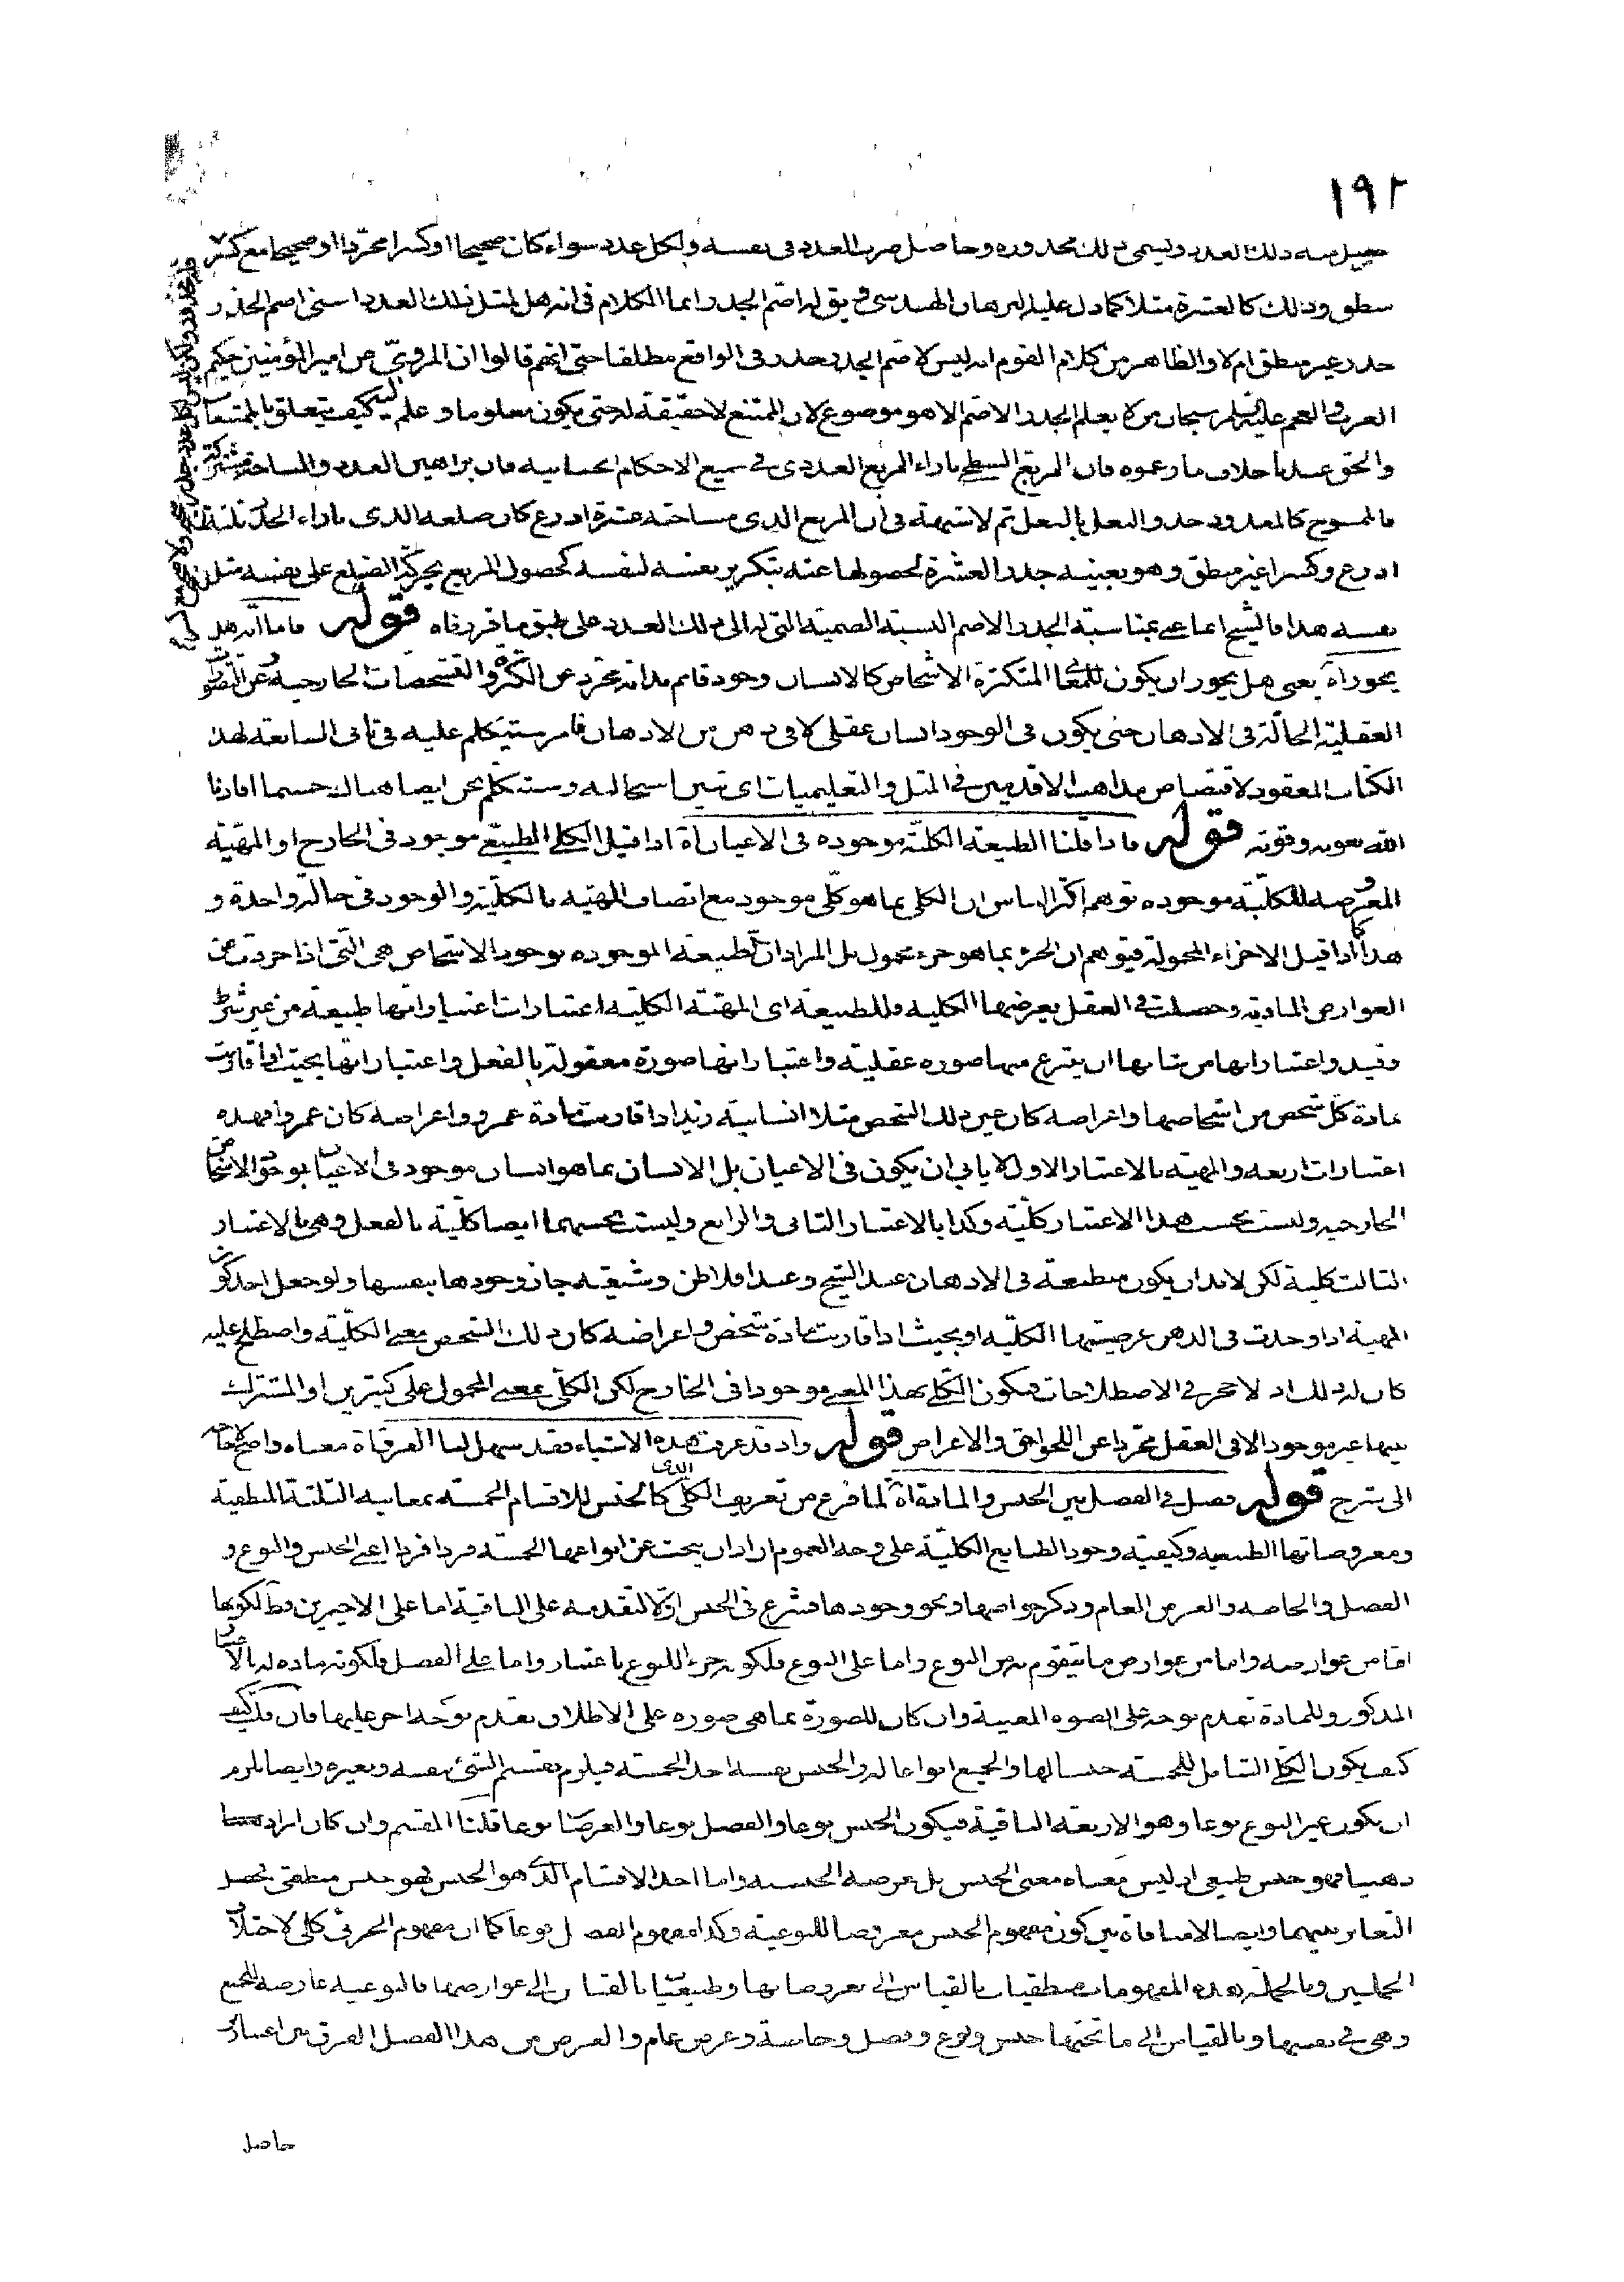 ١٩٢
منه ذلك العدد ويسمى ذلك مجذوره وحاصل ضرب العدد فى نفسه ولكل عدد سواء كان صحيحا او كسرا مجردا او صحيحا مع كسر
منطق وذلك كالعشرة مثلا كما دل عليه البرهان الهندسى فى يق له اصم الجذر انما الكلام فى انه هل لمثل ذلك العدد اسنى اصم الجذر
جذر غير منطق ام لا والظاهر من كلام القوم انه ليس لاصم الجذر جذر فى الواقع مطلقا حتى انهم قالوا ان المروىّ عن امير المؤمنين حكيم
العرب والعجم عليه السلم سبحان من لا يعلم الجذر الاصم الا هو موضوع لان الممتنع لا حقيقة له حتى يكون معلوما وعلم الله كيف يتعلق بالممتنعات
والحق عندنا خلاف ما زعموه فان المربع السطحى بازاء المربع العددى فى جميع الاحكام الحسابية فان براهين العدد والمساحة مشتركة
فالممسوح كالمعدود حذو النعل بالنعل ثم لا شبهة فى ان المربع الذى مساحته عشرة اذرع كان ضلعه الذى بازاء الجذر ثلثة
اذرع وكسرا غير منطق وهو بعينه جذر العشرة لحصولها عنه بتكرير نفسه لنفسه كحصول المربع بحركة الضلع على نفسه مثل
نفسه هذا فالشيخ انما عنى بمناسبة الجذر الاصم النسبة الصمية التى له الى ذلك العدد على طبق ما قررناه قوله فاما انه هل
يجوز اه يعنى هل يجوز ان يكون للمعانى المتكثرة الاشخاص كالانسان وجود قائم بذاته مجرد عن الكثرة والتشخصات الخارجية وعن التصور
العقلية الحالّة فى الاذهان حتى يكون فى الوجود انسان عقلى لا فى ذهن من الاذهان فامر سنتكلم عليه فى ثانى السابعة لهذا
الكتاب المعقود لاقتصاص مذاهب الاقدمين فى المثل والتعليميات اى تبين استحاله وسنتكلم نحن ايضا هناك حسبما افادنا
الله بعونه وقوته قوله فاذا قلنا الطبيعة الكلية موجوده فى الاعيان اه اذا قيل الكلى الطبيعى موجود فى الخارج او المهية
المعروضه للكلية موجوده توهم اكثر الناس ان الكلى بما هو كلى موجود مع اتصاف المهيه بالكلية والوجود فى حالة واحدة و
هذا كما اذا قيل الاجزاء المحمولة فيتوهم ان الجزء بما هو جزء محمول بل المراد ان الطبيعة الموجوده بوجود الاشخاص هى التى اذا جردت عن
العوارض المادية وحصلت فى العقل يعرضها الكلية وللطبيعة اى المهية الكلية اعتبارات اعتبار انها طبيعة من غير شرط
وقيد واعتبار انها من شانها ان ينتزع منها صوره عقلية واعتبار انها صورة معقولة بالفعل واعتبار انها بحيث اذا قارنت
مادة كل شخص من اشخاصها واعراضه كان عين ذلك الشخص مثلا انسانية زيد اذا قارنت مادة عمرو واعراضه كان عمروا فهذه
اعتبارات اربعه والمهية بالاعتبار الاول لا يابى ان يكون فى الاعيان بل الانسان بما هو انسان موجود فى الاعيان بوجود الاشخاص
الخارجيه وليست بحسب هذا الاعتبار كلية وكذا بالاعتبار الثانى والرابع وليست بحسبهما ايضا كلية بالفعل وهى بالاعتبار
الثالث كلية لكن لابد ان يكون منطبعة فى الاذهان عند الشيخ وعند افلاطن وشيعته جاز وجودها بنفسها ولو جعل احد كون
المهية اذا وجدت فى الذهن عرضتها الكليه او بحيث اذا قارنت مادة شخص واعراضه كان ذلك الشخص معنى الكلية واصطلح عليه
كان له ذلك اذ لا حجر فى الاصطلاحات فيكون الكلى بهذا المعنى موجودا فى الخارج لكن الكلى بمعنى المحمول على كثيرين او المشترك
بينها غير موجود الا فى العقل مجردا عن اللواحق والاعراض قوله واذ قد عرفت هذه الاشياء فقد سهل لنا الفرق اه معناه واضح لا حاجة
الى شرح قوله فصل فى الفصل بين الجنس والمادة اه لما فرغ من تعريف الكلى الذى كالجنس للاقسام الخمسه بمعانيه الثلثة المنطقية
ومعروضاتها الطبيعيه وكيفية وجود الطبايع الكلية على وجه العموم اراد ان يبحث عن انواعها الخمسة فردا فردا اعنى الجنس والنوع و
الفصل والخاصه والعرض العام وذكر خواصها ونحو وجودها فشرع فى الجنس اولا لتقدمه على الباقية اما على الاخيرين فظ لكونها
اما من عوارضه واما من عوارض ما يتقوم به من النوع واما على النوع فلكونه جزء للنوع باعتبار واما على الفصل فلكونه ماده له بالاعتبار
المذكور وللمادة تقدم بوجه على الصوره المعينة وان كان للصورة بما هى صوره على الاطلاق تقدم بوجه اخر عليها فان قلت كيف
كيف يكون الكلى الشامل للخمسة جنسا لها والجميع انواعا له والجنس نفسه احد الخمسة فيلزم تقسيم الشئ بنفسه وبغيره وايضا يلزم
ان يكون غير النوع نوعا وهو الاربعة الباقية فيكون الجنس نوعا والفصل نوعا والعرضيات نوعا قلنا المقسم وان كان امرا
ذهنيا فهو جنس طبيعى اذ ليس معناه معنى الجنس بل عرضه الجنسيه واما احد الاقسام الذى هو الجنس فهو جنس منطقى فحصل
التغاير بينهما وايضا لا منافاة بين كون مفهوم الجنس معروضا للنوعية وكذا مفهوم الفصل نوعا كما ان مفهوم الجزئى كلى لاختلاف
الحملين وبالجملة هذه المفهومات منطقيات بالقياس الى معروضاتها وطبيعيات بالقياس الى عوارضها فالنوعية عارضه للجميع
وهى فى نفسها وبالقياس الى ما تحتها جنس ونوع وفصل وخاصة وعرض عام والغرض من هذا الفصل الفرق بين اعتبار
حاصل